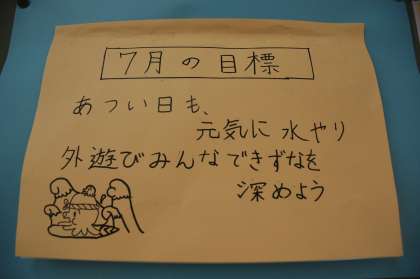 7月の目標
あつい日も、
元気に水やり
外遊びみんなできずなを
深めよう